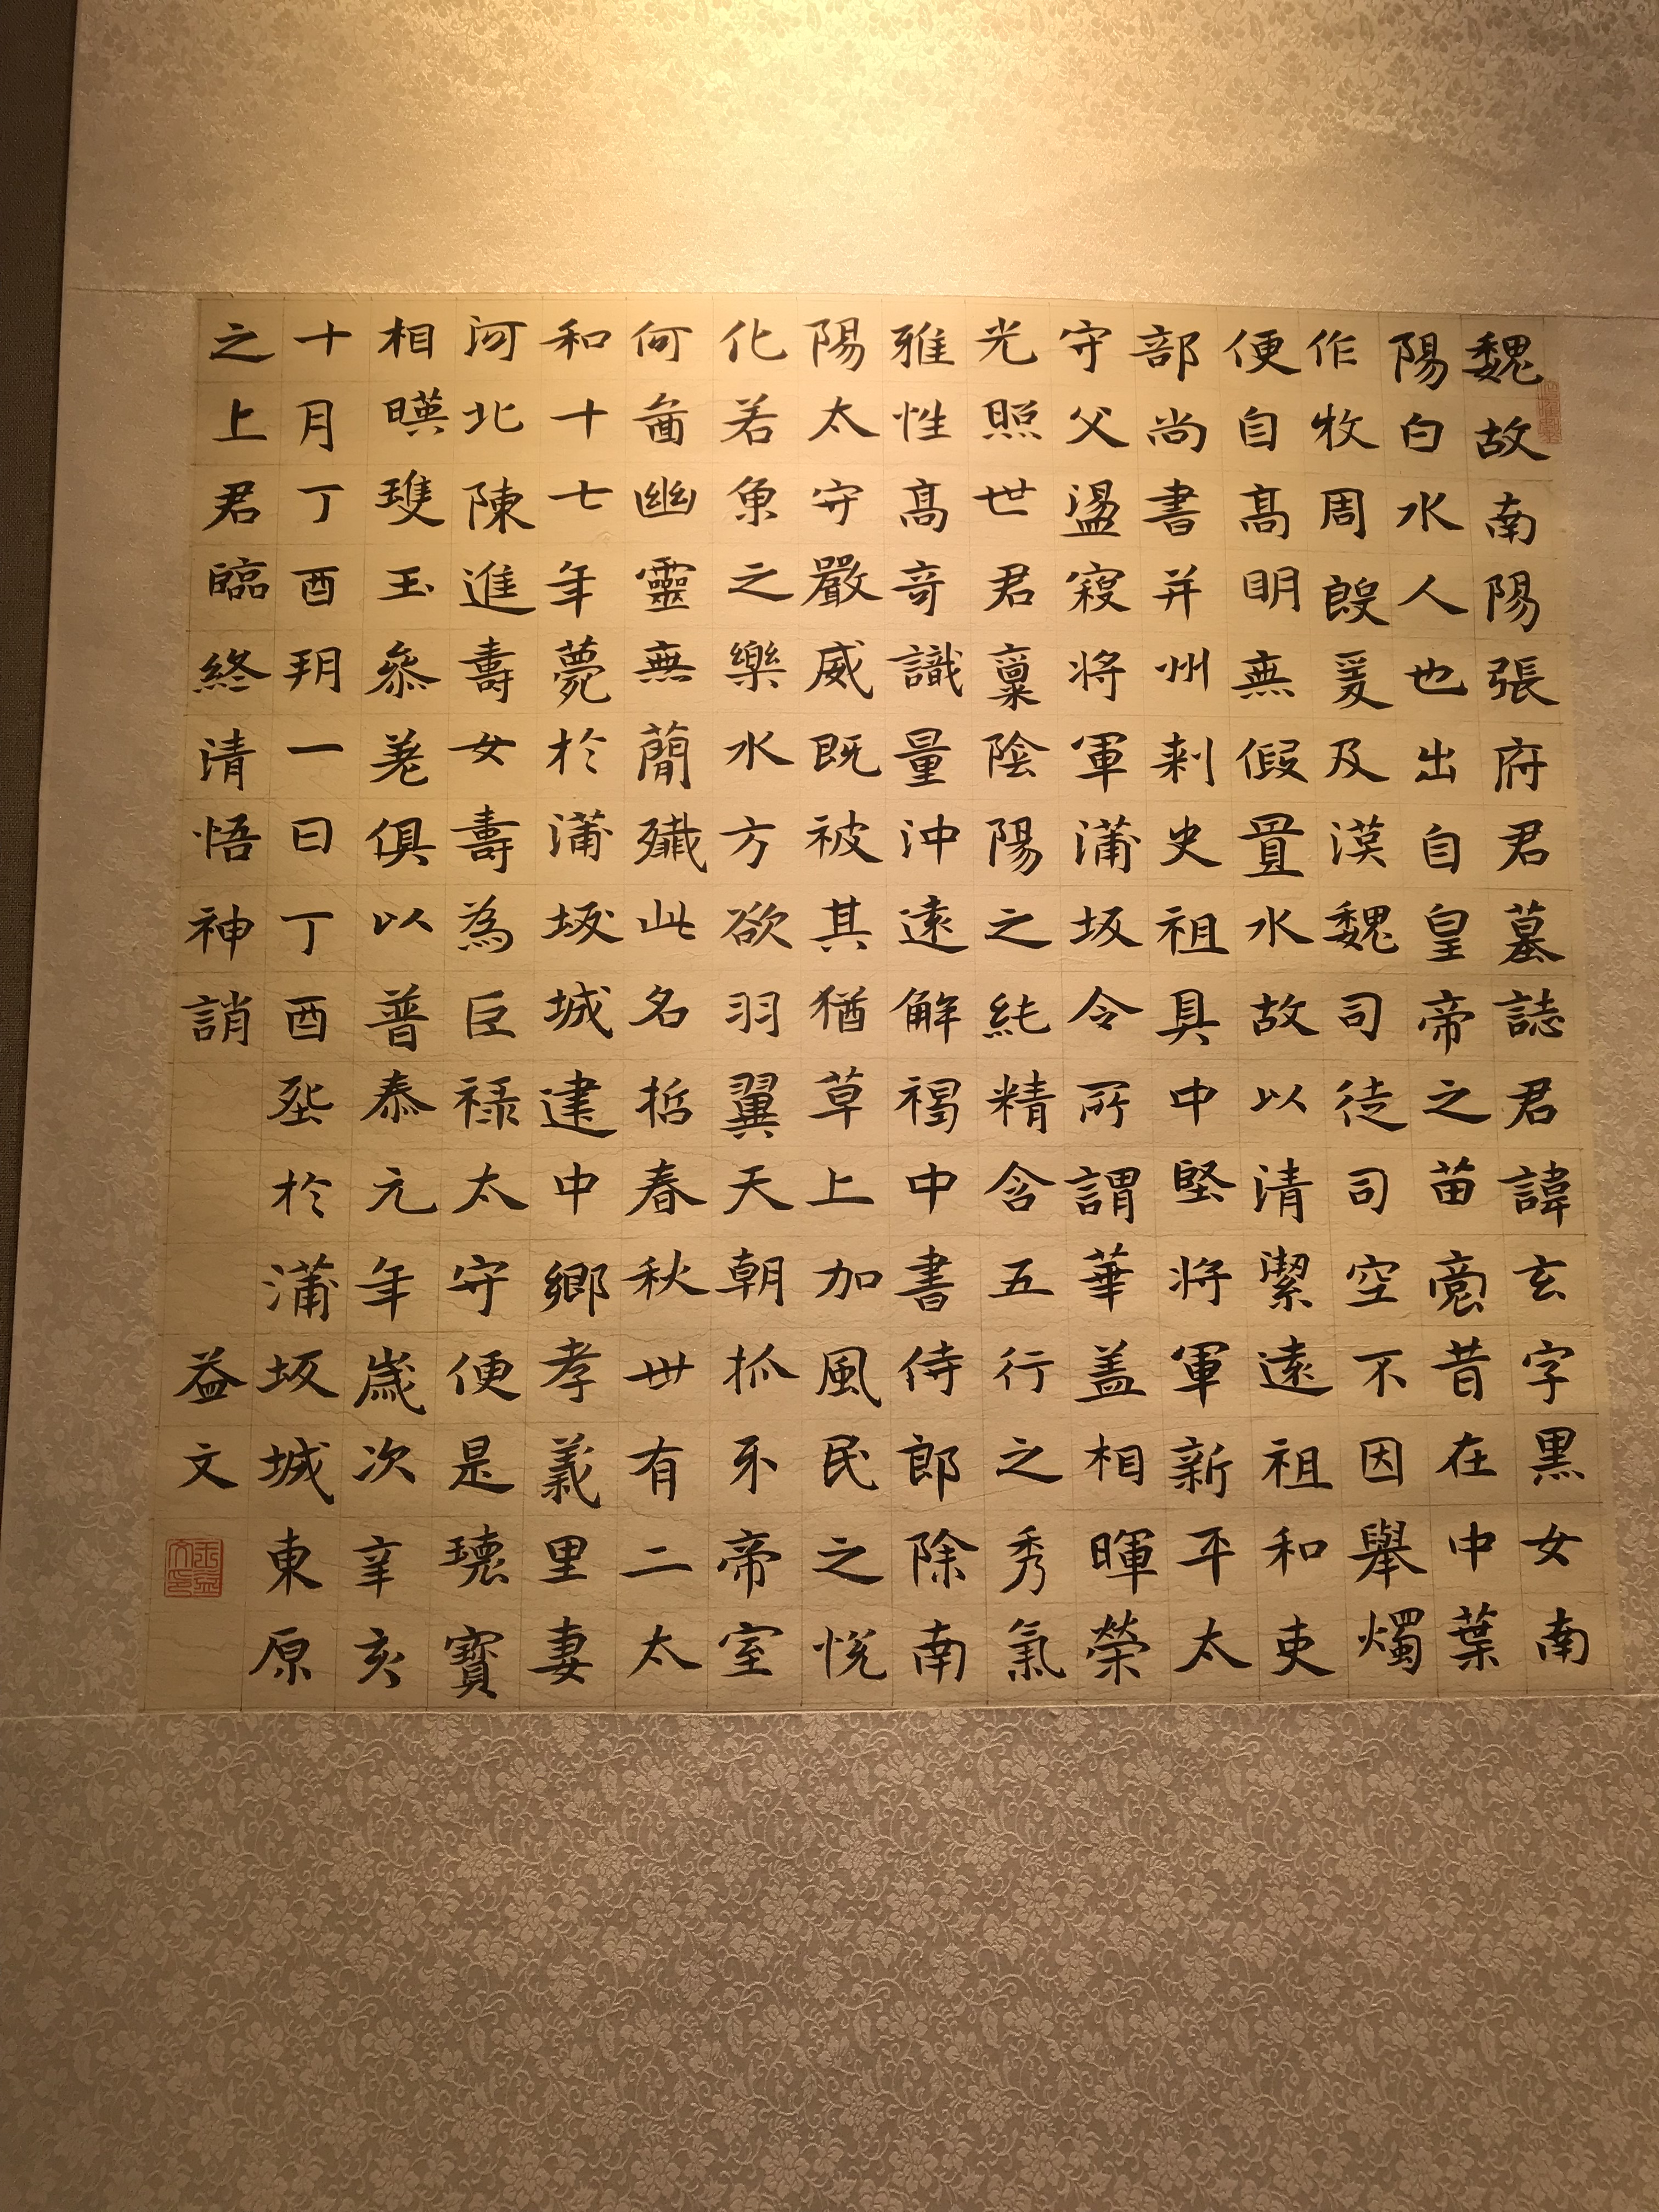 魏故南陽張府君墓誌君諱玄字黑女南
陽白水人也出自皇帝之苗裔昔在中葉
作牧周殷爰及漢魏司徒司空不因舉燭
便自高明無假置水故以清潔遠祖和吏
部尚書并州刺史祖具中堅將軍新平太
守父盪寇將軍蒲坂令所謂華蓋相暉榮
光照世君稟陰陽之純精含五行之秀氣
雅性高奇識量沖遠解褐中書侍郎除南
陽太守嚴威既被其猶草上加風民之悅
化若魚之樂水方欲羽翼天朝抓牙帝室
何啚幽靈無簡殲此名哲春秋卅有二太
和十七年薨於蒲坂城建中鄉孝義里妻
河北陳進壽女壽為巨祿太守便是瓌寶
相暎瓊玉參差俱以普泰元年歲次辛亥
十月丁酉朔一日丁酉堊於蒲坂城東原
之上君臨終清悟神誚 益文